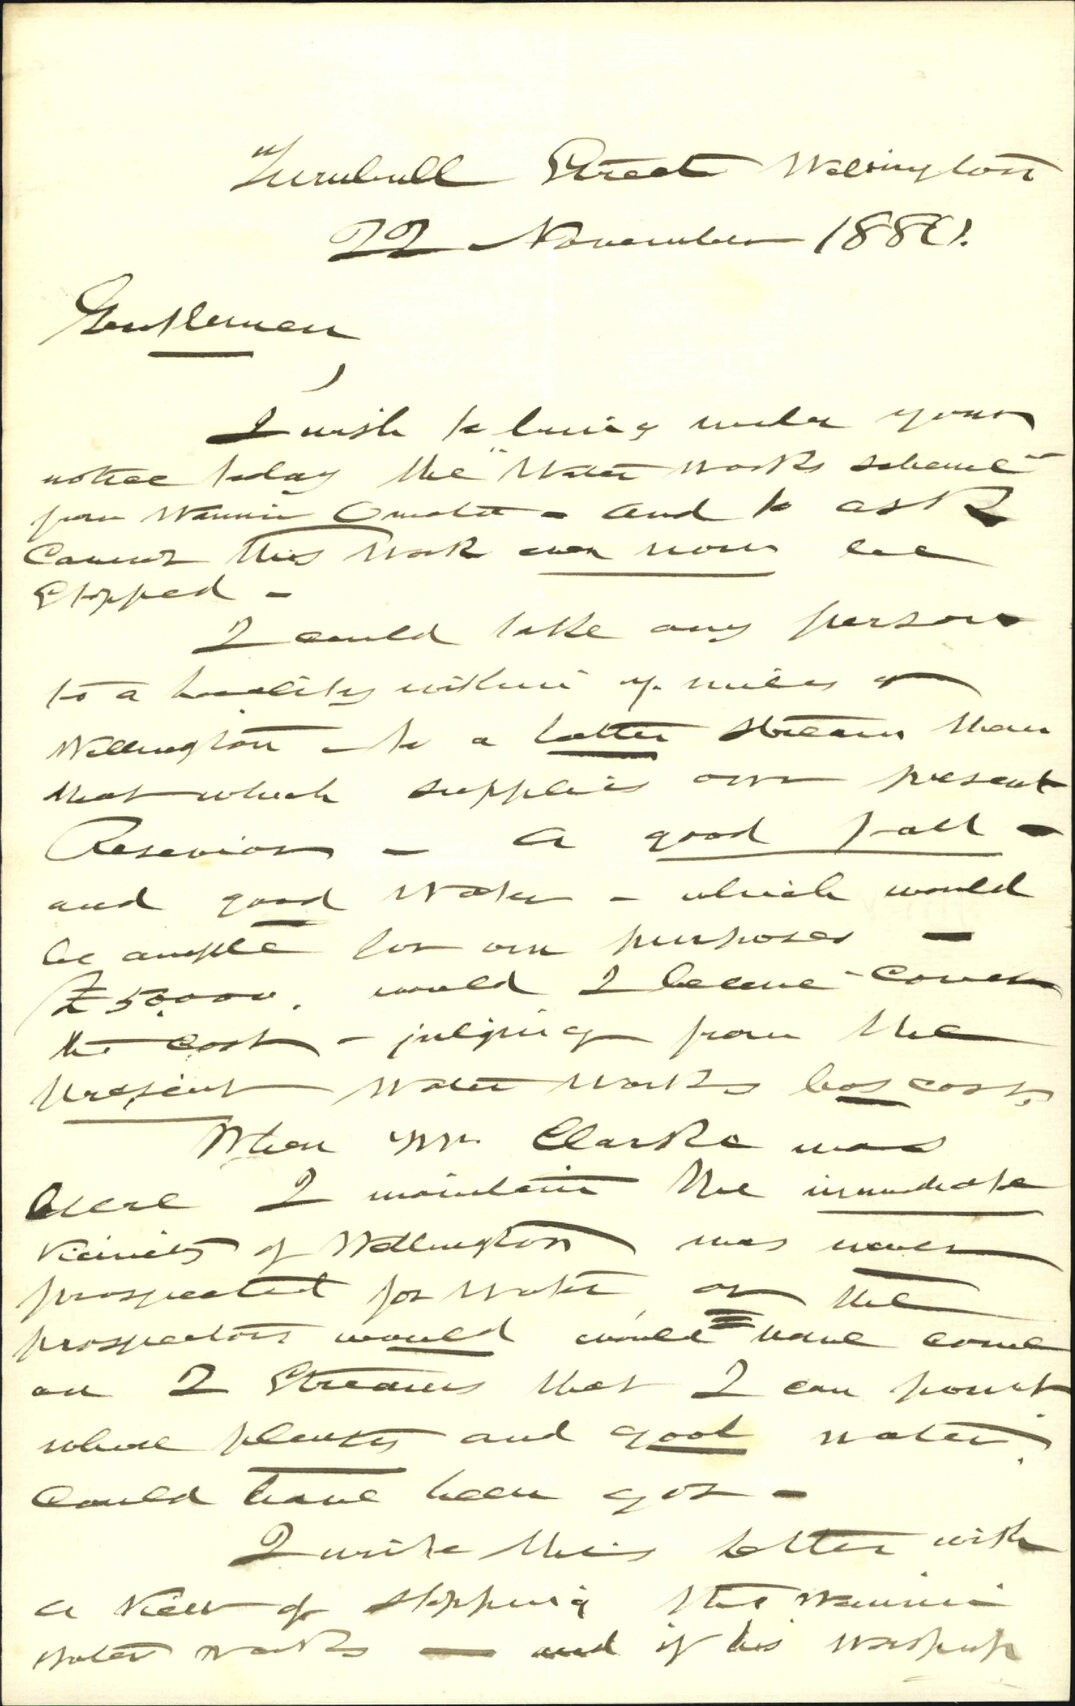 Turnbull Street Wellington
22 November 1880.
Gentlemen,
I wish to bring under your
notice today the "Water Works scheme"
from Wainui - and to ask
cannot this work even now be
stopped -
I could take any person
to a locality within miles of
Wellington - to a better stream than
that which supplies our present
Resevior - a good fall -
and good Water - which would
be ample for our purposes -
£50.000. would I beleive cover
the cost - judging from the
present Water Works has cost,
When Mr Clarke was
here I maintain the immediate
vicinity of Wellington was never
prospected for Water, or the
prospectors would would have come
on 2 Streams that I can point
where plenty and good water
could have been got -
I write this letter with
a view of stopping the Wainui
Water Works - and if his Worship